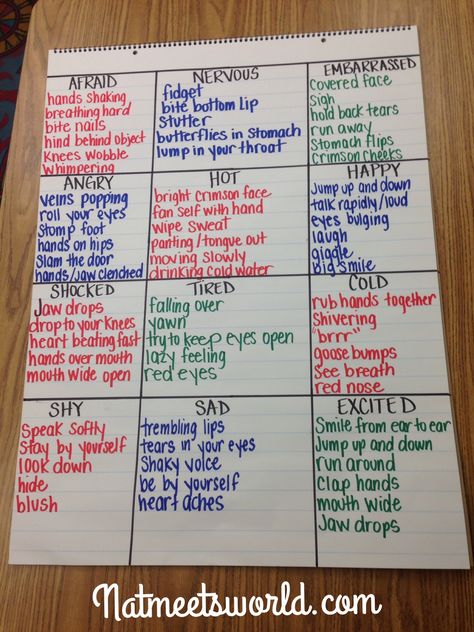 AFRAID
hands shaking
breathing hard
bite nails
hind behind object
Knees wobble
whimpering
NERVOUS
fidget
bite bottom lip
Stutter
butterflies in stomach
lump in your throat
EMBARRASSED
Covered face
sigh
hold back tears
run away
Stomach flips
crimson cheeks
ANGRY
veins popping
roll your eyes
Stomp foot
hands on hips
Slam the door
hands/jaw clenched
HOT
bright crimson face
fan self with hand
wipe sweat
panting/tongue out
moving slowly
drinking cold water
HAPPY
Jump up and down
talk rapidly/loud
eyes bulging
laugh
giggle
Big smile
SHOCKED
Jaw drops
drop to your Knees
heart beating fast
hands over mouth
mouth wide open
TIRED
falling over
yawn
try to keep eyes open
lazy feeling
red eyes
COLD
rub hands together
Shivering
"brrr"
goose bumps
See breath
red nose
SHY
Speak softly
Stay by yourself
look down
hide
blush
SAD
trembling lips
tears in your eyes
Shaky voice
be by yourself
heart aches
EXCITED
Smile from ear to ear
Jump up and down
run around
Clap hands
mouth wide
Jaw drops
Natmeetsworld.com